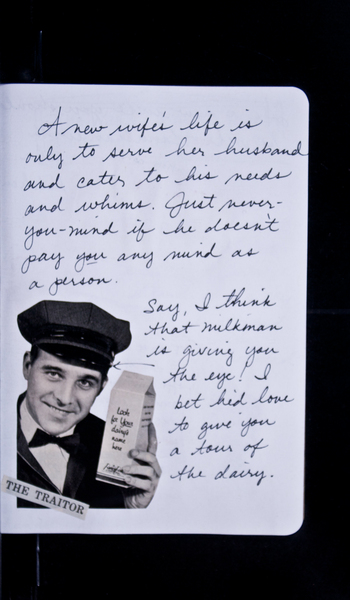 A new wife's life is
only to serve her husband
and cater to his needs
and whims. Just never-
you-mind if he doesn't
pay you any mind as
a person.
Say, I think
that milkman
is giving you
the eye! I
bet he'd love
to give you
a tour of
the dairy.
Look
for Your
dairy's
name
here
THE TRAITOR